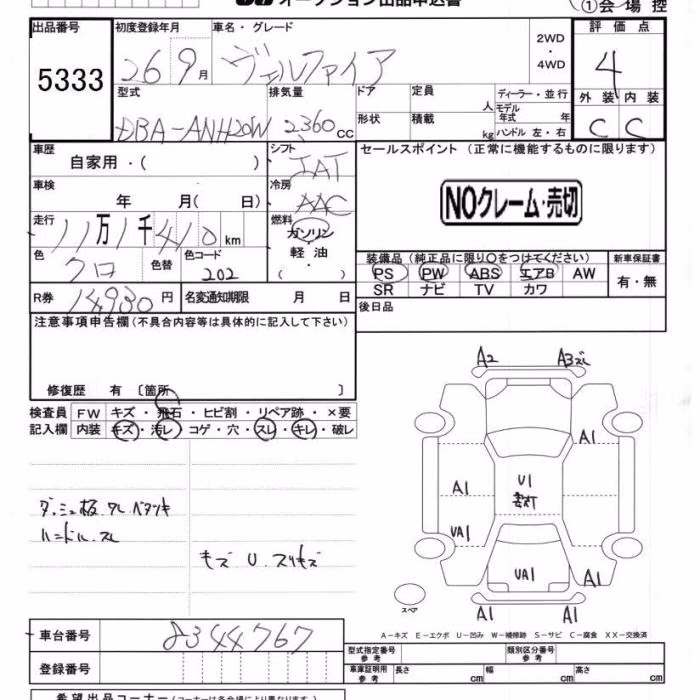 オークション出品申込書
①会場控
出品番号 初度登録年月 車名・グレード 評価点
5333 26 9月 ヴェルファイア 2WD・4WD 4
型式 排気量 ドア 定員 人 ディーラー・並行 外装 内装
DBA-ANH20W 2360cc 形状 積載 kg モデル年式 年 C C
ハンドル 左・右
車歴 シフト セールスポイント(正常に機能するものに限ります)
自家用・( ) IAT
車検 冷房 NOクレーム・売切
年 月( 日) AAC
走行 燃料
11万1千410km ガソリン・軽油・( )
色 色替 色コード 装備品(純正品に限り○をつけてください) 新車保証書
クロ 202 PS PW ABS エアB AW 有・無
SR ナビ TV カワ
R券 14930円 名変通知期限 月 日 後日品
注意事項申告欄(不具合内容等は具体的に記入して下さい)
修復歴 有 〔箇所 〕
検査員 FW キズ・飛石・ヒビ割・リペア跡・×要
記入欄 内装 キズ・汚レ・コゲ・穴・スレ・キレ・破レ
A2 A3ズレ
A1
A1 U1 A1
UA1
UA1 A1
A1 A1
スペア
ハンドル スレ
キズ U スリキズ
A-キズ E-エクボ U-凹み W-補修跡 S-サビ C-腐食 XX-交換済
車台番号 8344767
登録番号
型式指定番号 参考 類別区分番号 参考
車庫証明用 参考 長さ cm 幅 cm 高さ cm
希望出品コーナー(コーナーは各会場により異なります)